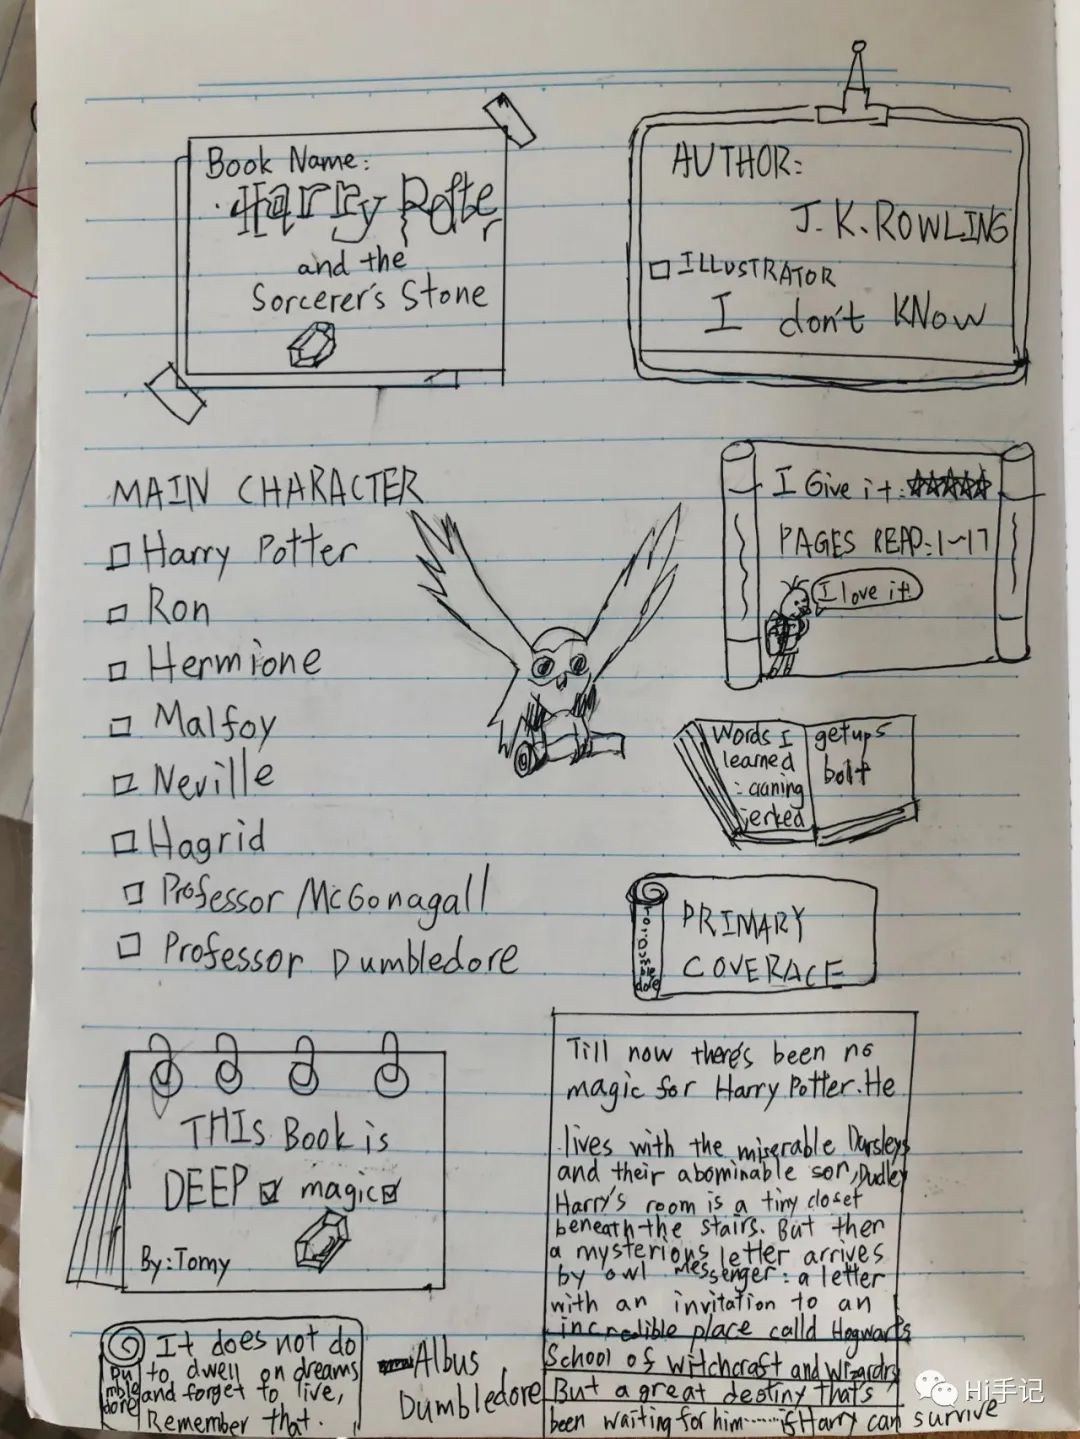 Book Name:
Harry Potter
and the
Sorcerer's Stone
AUTHOR:
J.K.ROWLING
ILLUSTRATOR
I don't KNow
MAIN CHARACTER
Harry Potter
Ron
Hermione
Malfoy
Neville
Hagrid
Professor McGonagall
Professor Dumbledore
I Give it:
PAGES READ:1~17
I love it!
Words I
learned
jerked
getups
bolt
PRIMARY
COVERAGE
THIS Book is
DEEP magic
By:Tomy
Till now there's been no
magic for Harry Potter. He
lives with the miserable Dursleys
and their abominable son, Dudley
Harry's room is a tiny closet
beneath the stairs. But then
a mysterious letter arrives
by owl messenger: a letter
with an invitation to an
incredible place calld Hogwarts
School of witchcraft and wizardry
But a great destiny that's
been waiting for him......if Harry can survive
It does not do
to dwell on dreams
and forget to live,
Remember that.
Dumbledore
Albus
Dumbledore
Hi手记